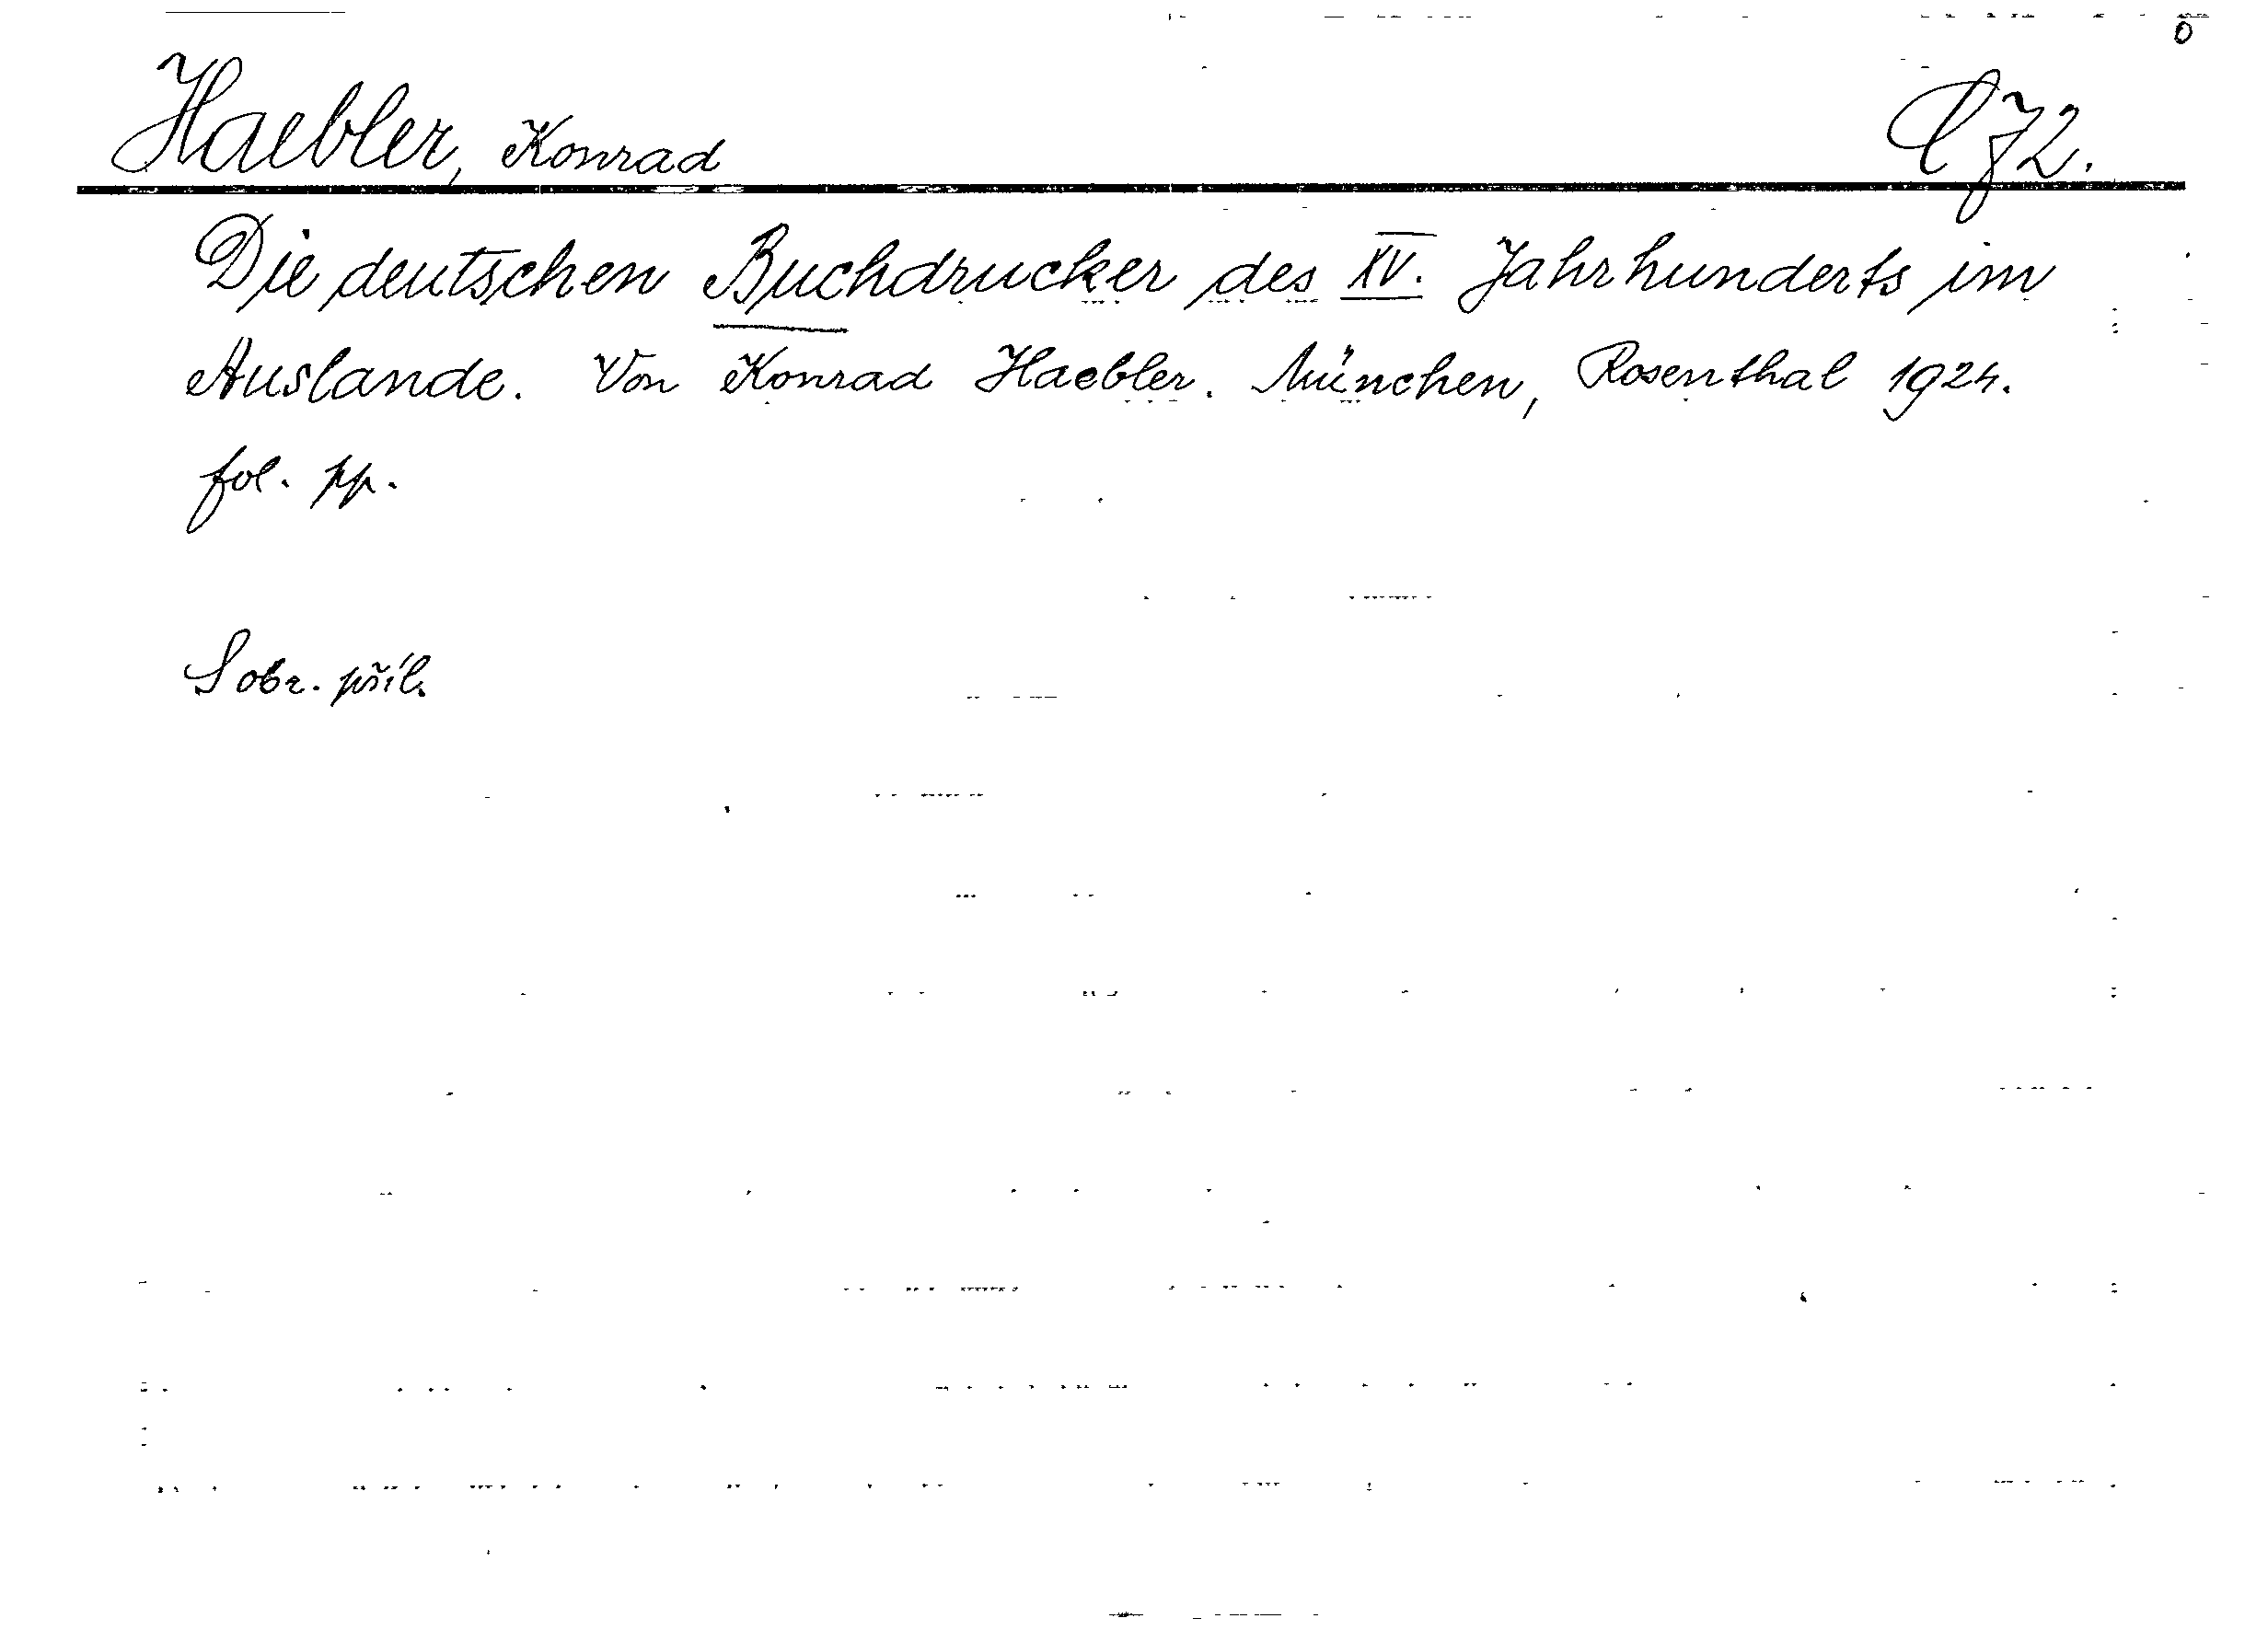 Haebler, Konrad C 72.
Die deutschen Buchdrucker des XV. Jahrhunderts im
Auslande. Von Konrad Haebler. München, Rosenthal 1924.
fol. pp.
S obr. příl.